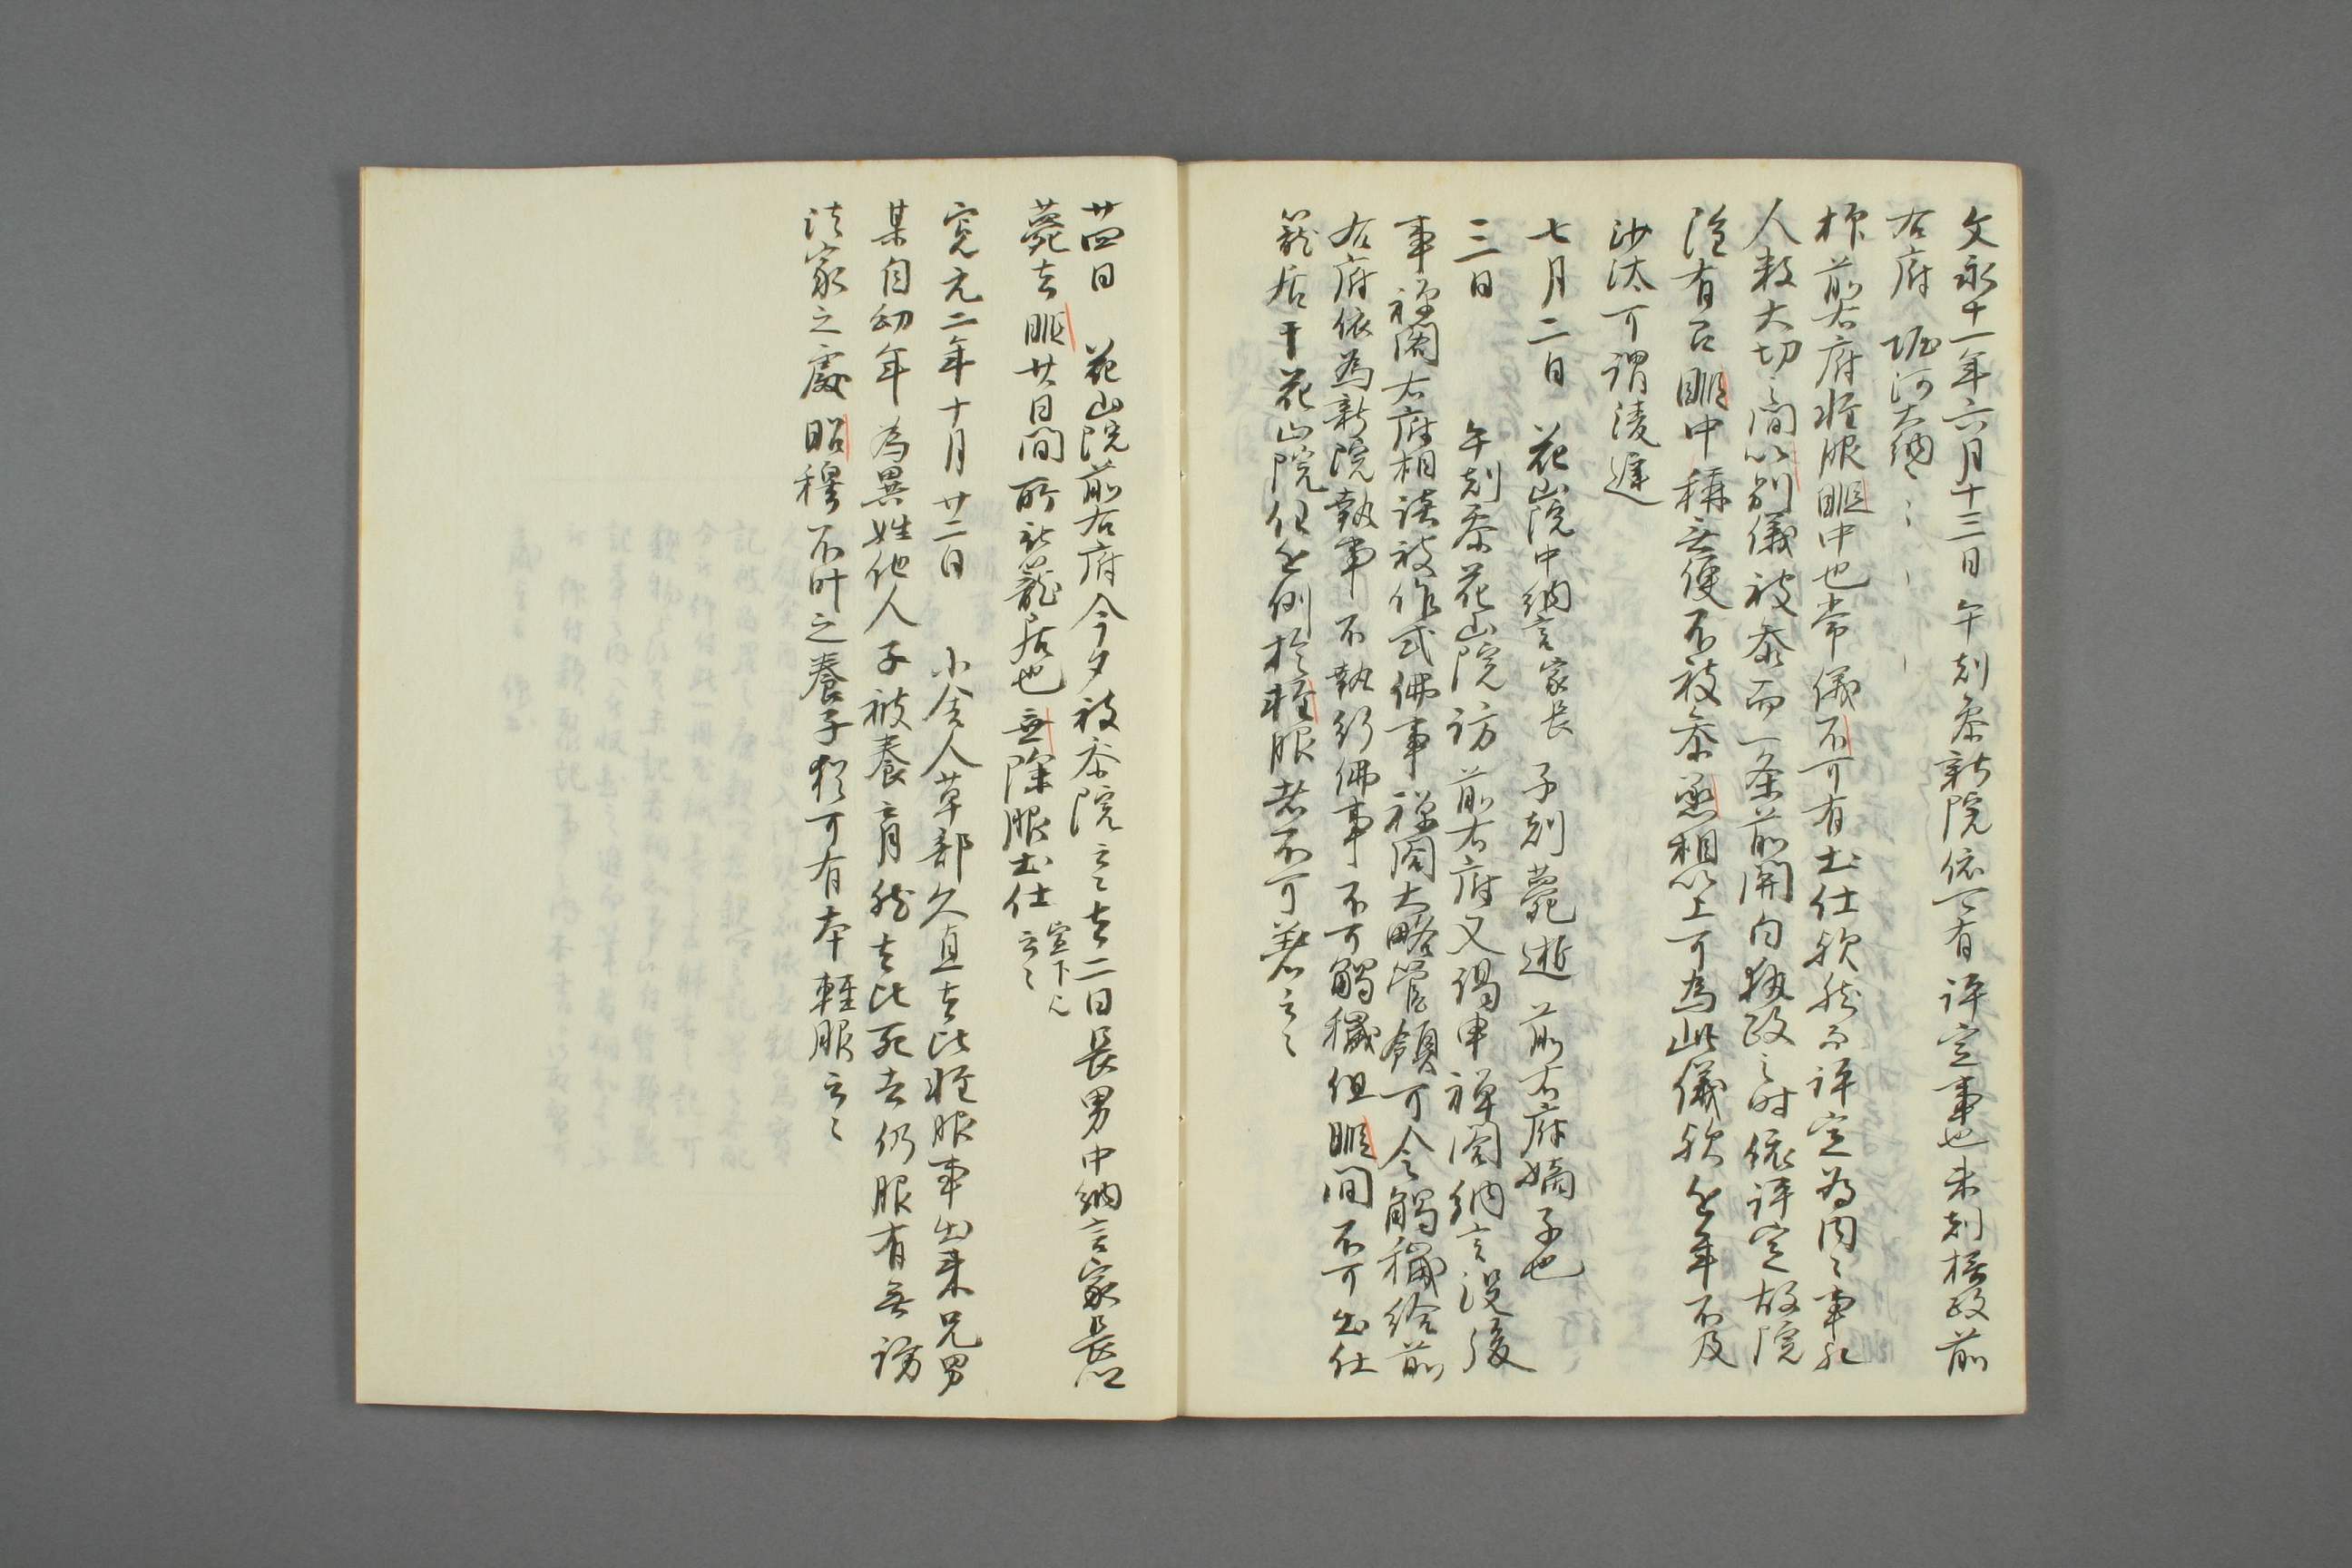 文永十一年六月十三日午剋参新院依可有評定事也未剋摂政前
右府堀河大納〻〻〻
抑前右府軽服暇中也常儀不可有出仕歟然而評定為内〻事非
人数大切之間以別儀被参而一条前関白執政之時依評定故院
雖有召暇中称无便不被参丞相以上可為此儀歟近年不及
沙汰可謂淩遅
七月二日 花山院中納言家長 子剋薨逝 前右府嫡子也
三日 午剋参花山院訪前右府又謁申禅閤納言没後
事禅閤右府相議被作式佛事禅閤大略管領可令觸穢給前
右府依為新院執事不執行佛事不可觸穢但暇間不可出仕
籠居于花山院但近例於軽服者不可着云〻
廿四日 花山院前右府今夕被参院云〻去二日長男中納言家長卿
薨去暇廿日間所被籠居也無除服出仕宣下云〻
寛元二年十月廿二日 小舎人草部久直去比軽服事出来兄男
某自幼年為異姓他人子被養育然去比死去仍服有無訪
法家之處昭穆不叶之養子猶可有本軽服云〻